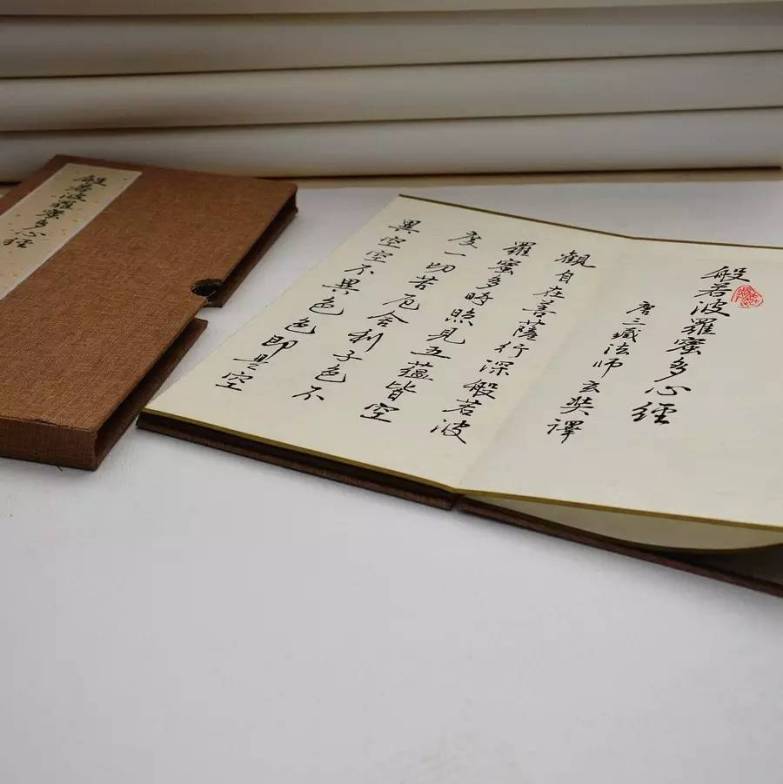 般若波羅蜜多心經
唐三藏法師玄奘譯
觀自在菩薩行深般若波
羅蜜多時照見五蘊皆空
度一切苦厄舍利子色不
異空空不異色色即是空
般若波羅蜜多心經